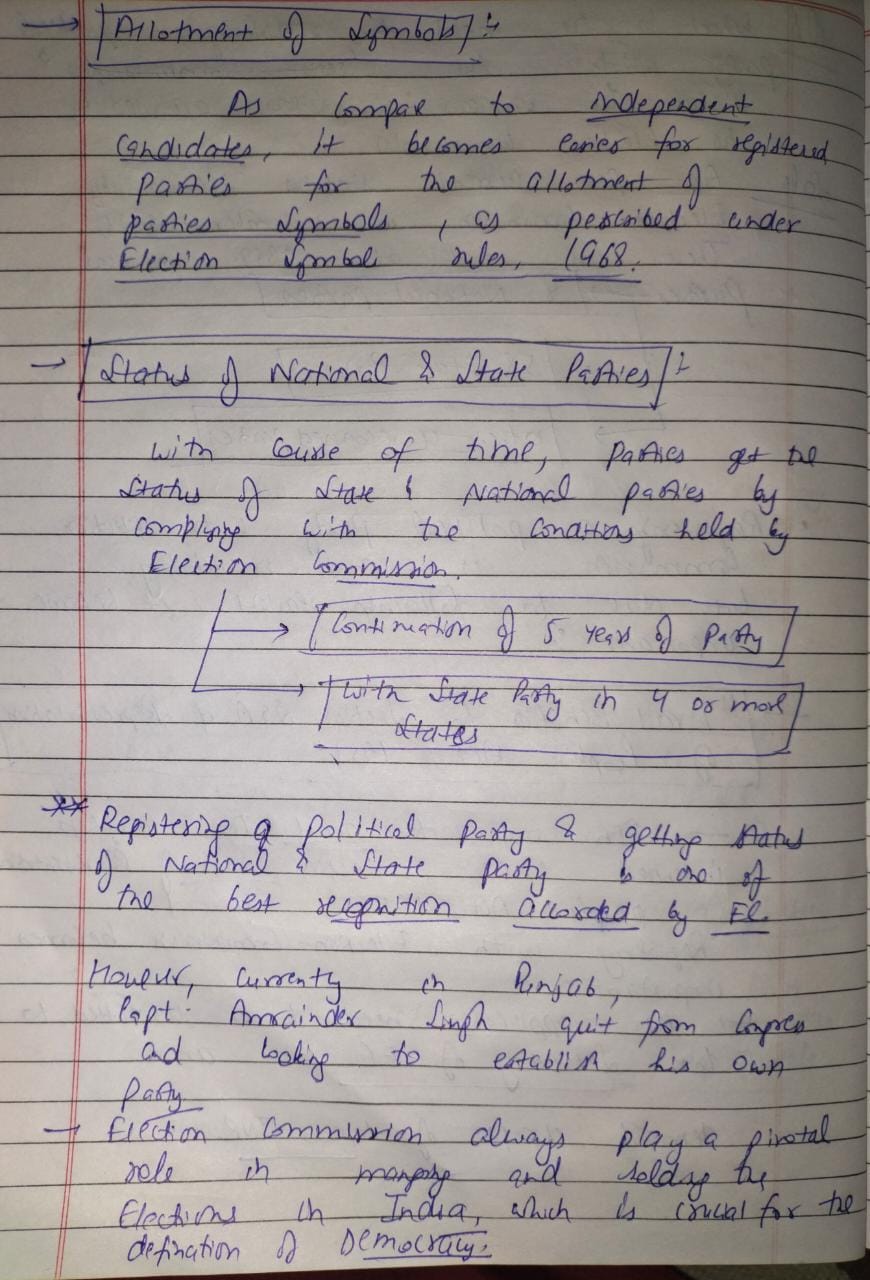 → Allotment of Symbols :-
As compare to independent
candidates, it becomes easier for registered
parties for the allotment of
parties symbols, as pescribed under
Election Symbols rules, 1968.
→ Status of National & State Parties :-
with course of time, parties get the
status of State & National parties by
complying with the conditions held by
Election Commission.
→ Continuation of 5 years of party
→ with State Party in 4 or more
states
** Registering a political party & getting status
of National & State party is one of
the best recognition accorded by EC.
However, currently in Punjab,
Capt. Amrainder Singh quit from Congress
and looking to establish his own
party
→ Election Commission always play a pivotal
role in manging and holding the
Elections in India, which is crucial for the
defination of Democracy.